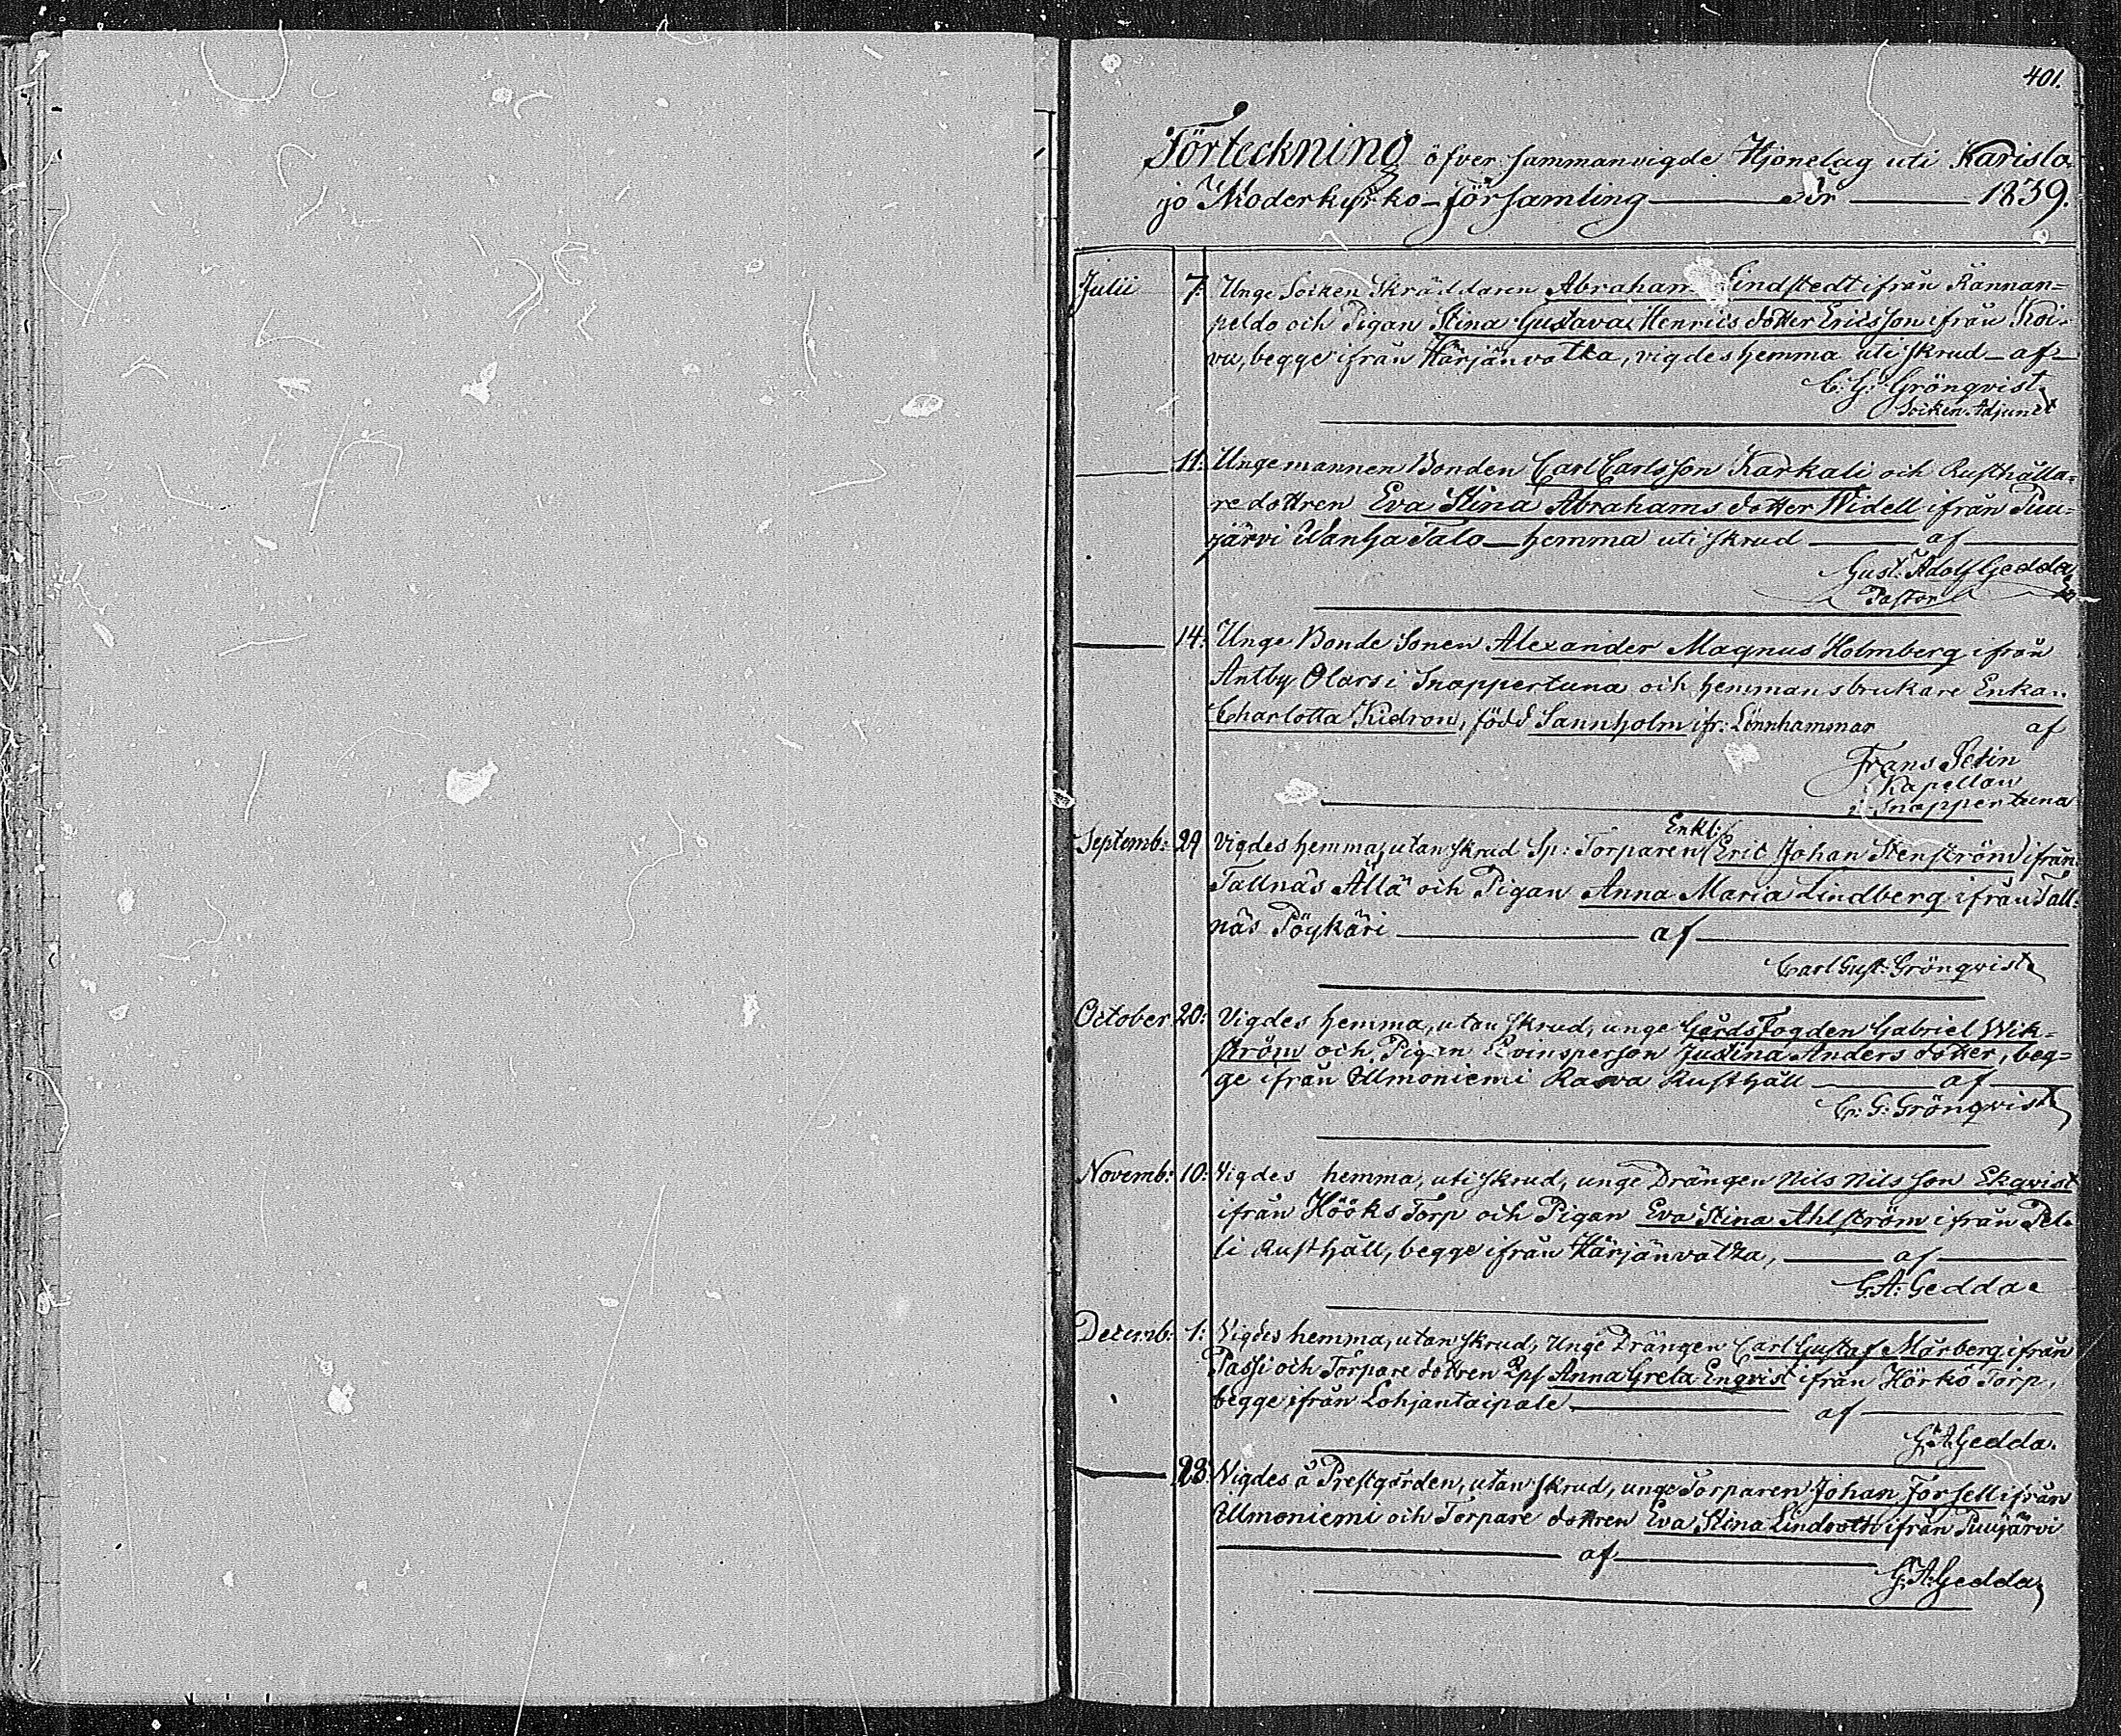 401.
Förteckning öfver sammanvigde Hjonelag uti Karislo-
jo Moderkyrko-Församling — År — 1839.
Julii 7. Unge Socken Skräddaren Abraham Lindstedt ifrån Rännan=
peldo och Pigan Stina Gustava Henrics dotter Ericsson ifrån Koi-
vu, begge ifrån Härjänvatka, vigdes hemma uti skrud — af —
C. G. Grönqvist
Socken Adjunct
— 11: Unge mannen Bonden Carl Carlsson Karkali och Rusthålla=
re dottren Eva Stina Abrahams dotter Widell ifrån Puu-
järvi Wanha Talo — hemma uti skrud — af —
Gust: Adolf Gedda
Pastor
— 14: Unge Bonde Sonen Alexander Magnus Holmberg ifrån
Antby Olars i Snappertuna och hemmansbrukare Enkan
Charlotta Kidron, född Sannholm ifr: Lönnhammar af
Frans
Kapellan
i Snappertuna
Enkl:
Septemb: 29 Vigdes hemma, utan skrud Sp: Torparen Eric Johan Stenström ifrån
Tallnäs Älä och Pigan Anna Maria Lindberg ifrån Tall-
näs Pöykäri — af —
Carl Gust: Grönqvist
October 20: Vigdes hemma, utan skrud, unge Gårds Fogden Gabriel Wik-
ström och Pigan Qvinsperson Justina Anders dotter, beg=
ge ifrån Ilmoniemi Rasva Rusthåll — af —
C: G: Grönqvist
Novemb: 10: Vigdes hemma, uti skrud, unge Drängen Nils Nilsson Ekqvist
ifrån Hööks Torp och Pigan Eva Stina Ahlström ifrån Pel-
li Rusthåll, begge ifrån Härjänvatka, — af —
G. A: Gedda
Decemb: 1: Vigdes hemma, utan skrud, Unge Drängen Carl Gustaf Mårberg ifrån
Passi och Torpare dottren Qps Anna Greta Enqvist ifrån Hörkö Torp,
begge ifrån Lohjantaipale — af —
G. A: Gedda.
— 28: Vigdes å Prestgården, utan skrud, unge Torparen Johan Forsell ifrån
Ilmoniemi och Torpare dottren Eva Stina Lindroth ifrån Puujärvi
— af —
G: A: Gedda